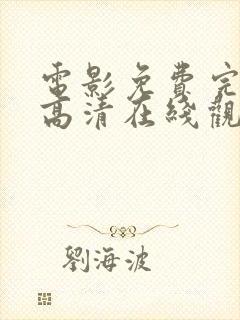 電影免費完
高清在綫觀
劉海波